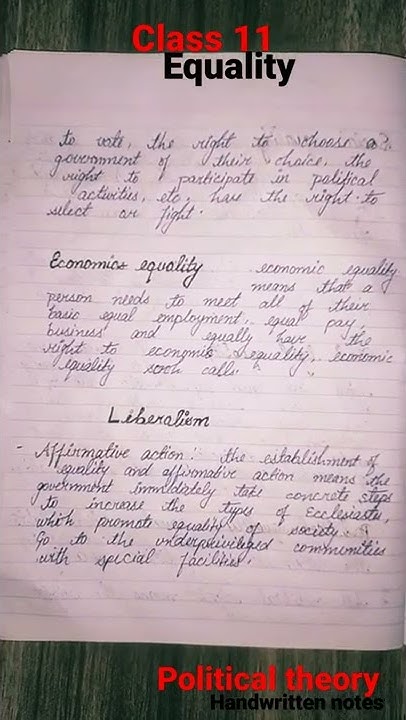 Class 11
Equality
to vote, the right to choose a
government of their choice, the
right to participate in political
activities, etc. have the right to
select or fight.
Economics equality economic equality
means that a
person needs to meet all of their
basic equal employment, equal pay,
business and equally have the
right to economic equality, economic
equality soon calls
Liberalism
- Affirmative action: the establishment of
equality and affirmative action means the
government immediately take concrete steps
to increase the types of Ecclesiaste,
which promote equality of society.
Go to the underpriviliged communities
with special facilities.
Political theory
Handwritten notes